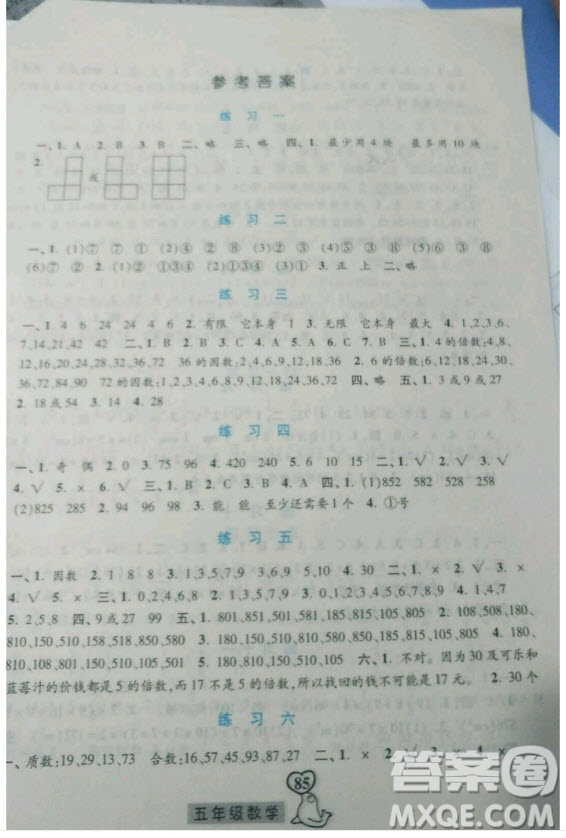 参考答案
练习一
一、1. A 2. B 3. B 二、略 三、略 四、1. 最少用4块 最多用10块
2. 或
练习二
一、1. (1)⑦ ⑦ ① (2)④ ② ⑧ (3)② ④ ⑧ (4)⑤ ① ⑧ (5)⑥ ③ ⑧
(6)⑦ ② 2. ①③④ (2)②④ (3)①③④ (4)① 3. 正 上 二、略
练习三
一、1. 4 6 24 24 4 6 2. 有限 它本身 1 3. 无限 它本身 最大 4. 1,2,3,6,
7,14,21,42 二、1. B 2. B 3. C 4. A 5. C 三、1. 4的倍数:4,8,
12,16,20,24,28,32,36,72 36的因数:2,4,6,9,12,18,36 2. 6的倍数:6,12,18,24,30,
36,72,84,90 72的因数:1,2,3,4,6,8,9,12,18,24,36,72 四、略 五、1. 3或9或27
2. 18或54 3. 14 4. 28
练习四
一、1. 奇 偶 2. 0 3. 75 96 4. 420 240 5. 6 10 15 二、1. √ 2. √ 3. √
4. √ 5. × 6. √ 三、1. B 2. C 3. B 4. A 四、1. (1)852 582 528 258
(2)825 285 2. 94 96 98 3. 能 能 至少还需要1个 4. ①号
练习五
一、1. 因数 2. 1 8 8 3. 1,3,5,7,9 3,6,9 5,10 4. 30 二、1. × 2. √ 3. ×
4. √ 5. × 三、1. 0,2,4,6,8 2. 1,3,5,7,9 3. 0,1,2,3,4,5,6,7,8,9 4. 1,4,7
5. 2,5,8 四、9或27 99 五、1. 801,851,501,581,185,815,105,805 2. 508,108,180,
810,510,150,158,518,850,580 3. 180,510,150,580,850,185,815,105,805 4. 180,
810,105,801 5. 180,810,510,150 6. 180,810,510,150 六、1. 不对。因为30及可乐和
蓝莓汁的价钱都是5的倍数,而17不是5的倍数,所以找回的钱不可能是17元。 2. 30个
练习六
一、质数:19,29,13,73 合数:16,57,45,93,87,27 二、1. × 2. √ 3. × 4. ×
85
五年级数学
答案圈
MXQE.COM